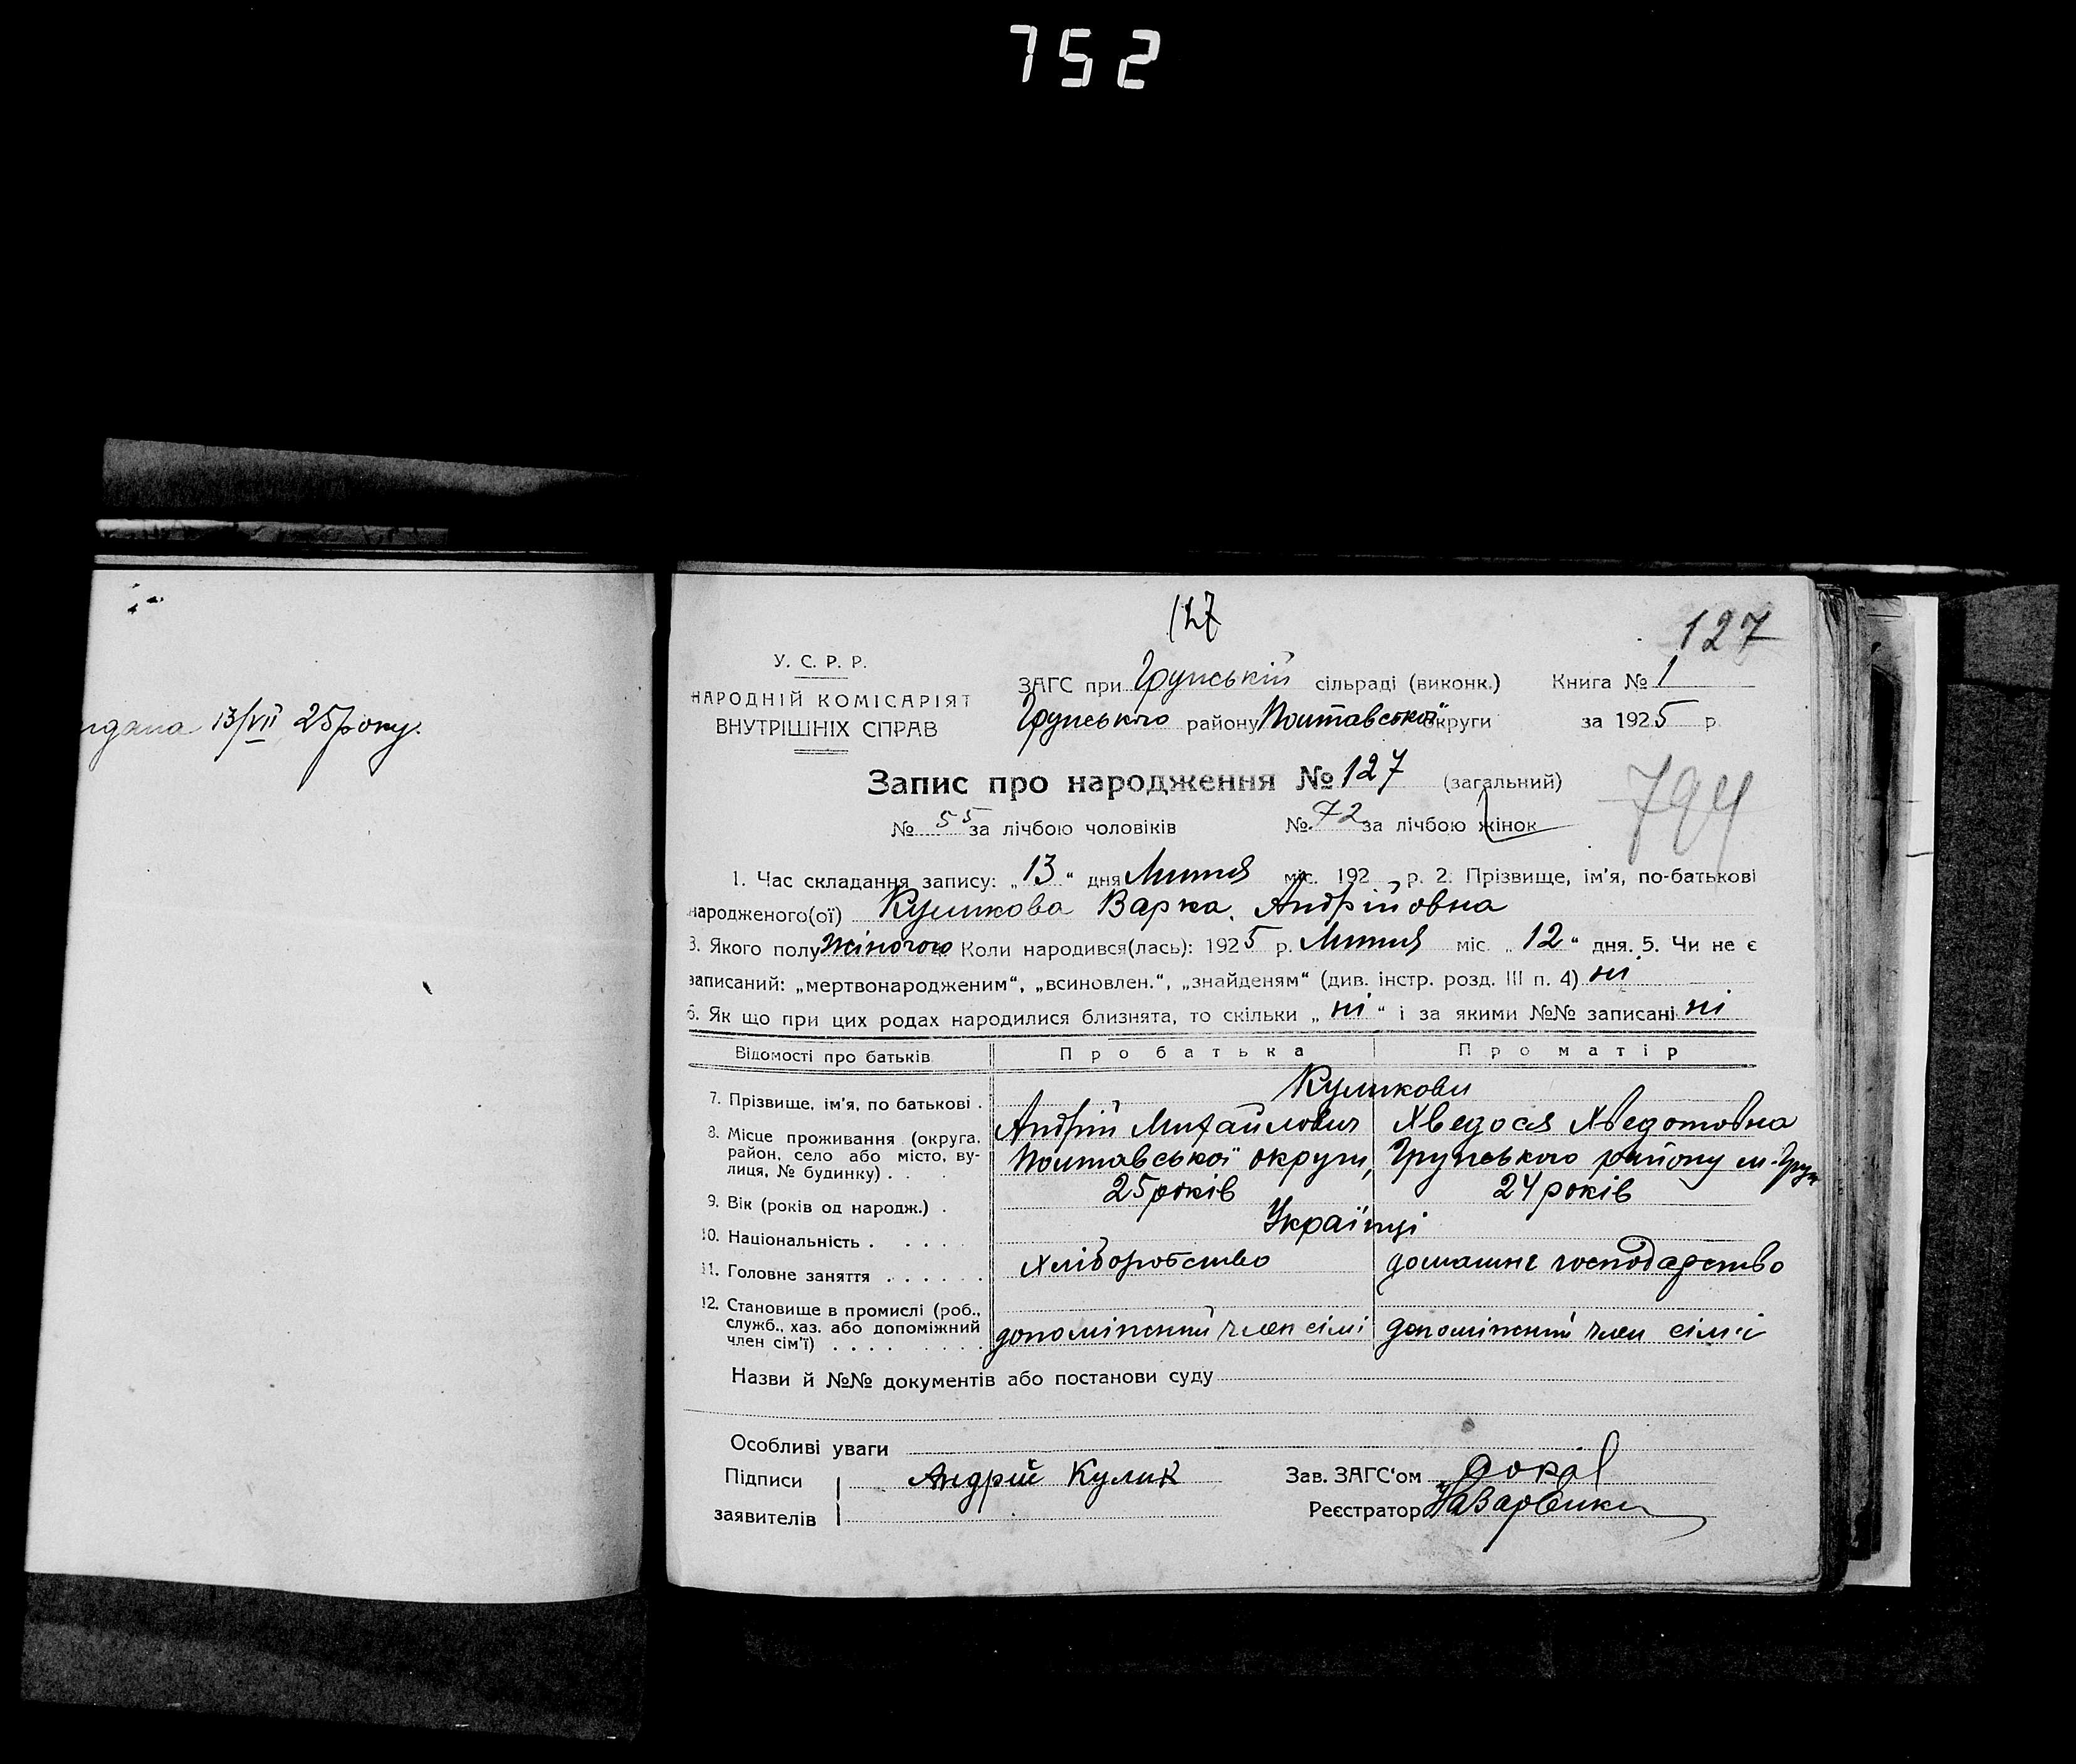 752
13/VII 25 року.
127
127
У. С. Р. Р.
НАРОДНІЙ КОМІСАРІЯТ
ВНУТРІШНІХ СПРАВ
ЗАГС при Грунській сільраді (виконк.) Книга № 1
Грунського району Полтавської округи за 1925 р.
Запис про народження № 127 (загальний)
794
№ 55 за лічбою чоловіків № 72 за лічбою жінок
1. Час складання запису: „13“ дня Липня міс. 192 р. 2. Прізвище, ім'я, по-батькові
народженого(ої) Куликова Варка Андрійовна
3. Якого полу жіночого Коли народився(лась): 1925 р. Липня міс. „12“ дня. 5. Чи не є
записаний: „мертвонародженим“, „всиновлен.“, „знайденям“ (див. інстр. розд. III п. 4) ні
6. Як що при цих родах народилися близнята, то скільки „ні“ і за якими №№ записані ні
Відомості про батьків Про батька Про матір
Куликови
7. Прізвище, ім'я, по батькові . Андрій Михайлович Хведося Хведотовна
8. Місце проживання (округа, район, село або місто, вулиця, № будинку) . . . Полтавської округи, Грунського району м. Грунь
9. Вік (років од народж.) . 25 років 24 років
10. Національність . . . . Українці
11. Головне заняття . . . . . . Хліборобство домашнє господарство
12. Становище в промислі (роб., служб., хаз. або допоміжний член сім'ї) . . . . . . . . допоміжний член сімї допоміжний член сімї
Назви й №№ документів або постанови суду
Особливі уваги
Підписи заявителів Андрій Кулик
Зав. ЗАГС'ом
Реєстратор